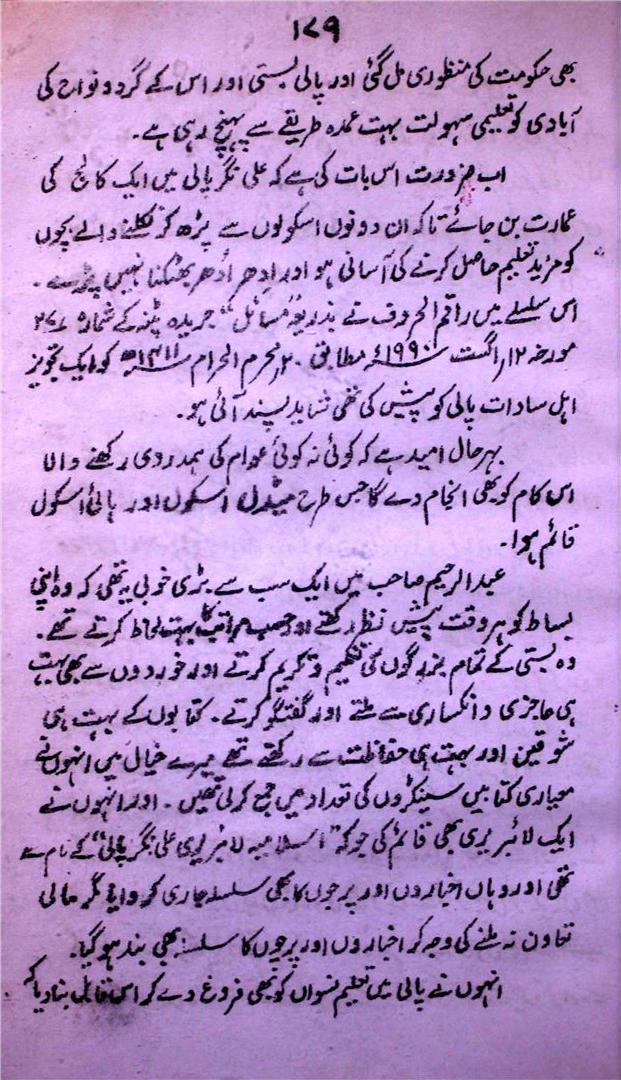 ۱۷۹
بھی حکومت کی منظوری مل گئی اور پالی بستی اور اس کے گرد و نواح کی
آبادی کو تعلیمی سہولت بہت عمدہ طریقے سے پہنچ رہی ہے۔
اب ضرورت اس بات کی ہے کہ علی نگر پالی میں ایک کالج کی
عمارت بن جائے تاکہ ان دونوں اسکولوں سے پڑھ کر نکلنے والے بچوں
کو مزید تعلیم حاصل کرنے کی آسانی ہو اور ادھر اُدھر بھٹکنا نہیں پڑے۔
اس سلسلے میں راقم الحروف نے بذریعہ "مسائل" جریدہ پٹنہ کے شمارہ
مورخہ ۱۲/اگست ۱۹۹۰ء مطابق ۲۰/محرم الحرام ۱۴۱۱ھ کو ایک تجویز
اہل سادات پالی کو پیش کی تھی شاید پسند آئی ہو۔
بہرحال امید ہے کہ کوئی نہ کوئی عوام کی ہمدردی رکھنے والا
اس کام کو بھی انجام دے گا جس طرح میڈل اسکول اور ہائی اسکول
قائم ہوا۔
عبدالرحیم صاحب میں ایک سب سے بڑی خوبی یہ تھی کہ وہ اپنی
بساط کو ہر وقت پیش نظر رکھتے اور حسب مراتب کا بہت لحاظ کرتے تھے۔
وہ بستی کے تمام بزرگوں کی تعظیم و تکریم کرتے اور خوردوں سے بھی بہت
ہی عاجزی و انکساری سے ملتے اور گفتگو کرتے۔ کتابوں کے بہت ہی
شوقین اور بہت ہی حفاظت سے رکھتے تھے میرے خیال میں انہوں نے
معیاری کتابیں سینکڑوں کی تعداد میں جمع کرلی تھیں۔ اور انہوں نے
ایک لائبریری بھی قائم کی جو کہ "اسلامیہ لائبریری علی نگر پالی" کے نام سے
تھی اور وہاں اخباروں اور پرچوں کا بھی سلسلہ جاری کروایا مگر مالی
تعاون نہ ملنے کی وجہ کر اخباروں اور پرچوں کا سلسلہ بھی بند ہوگیا۔
انہوں نے پالی میں تعلیم نسواں کو بھی فروغ دے کر اس قابل بنا دیا کہ